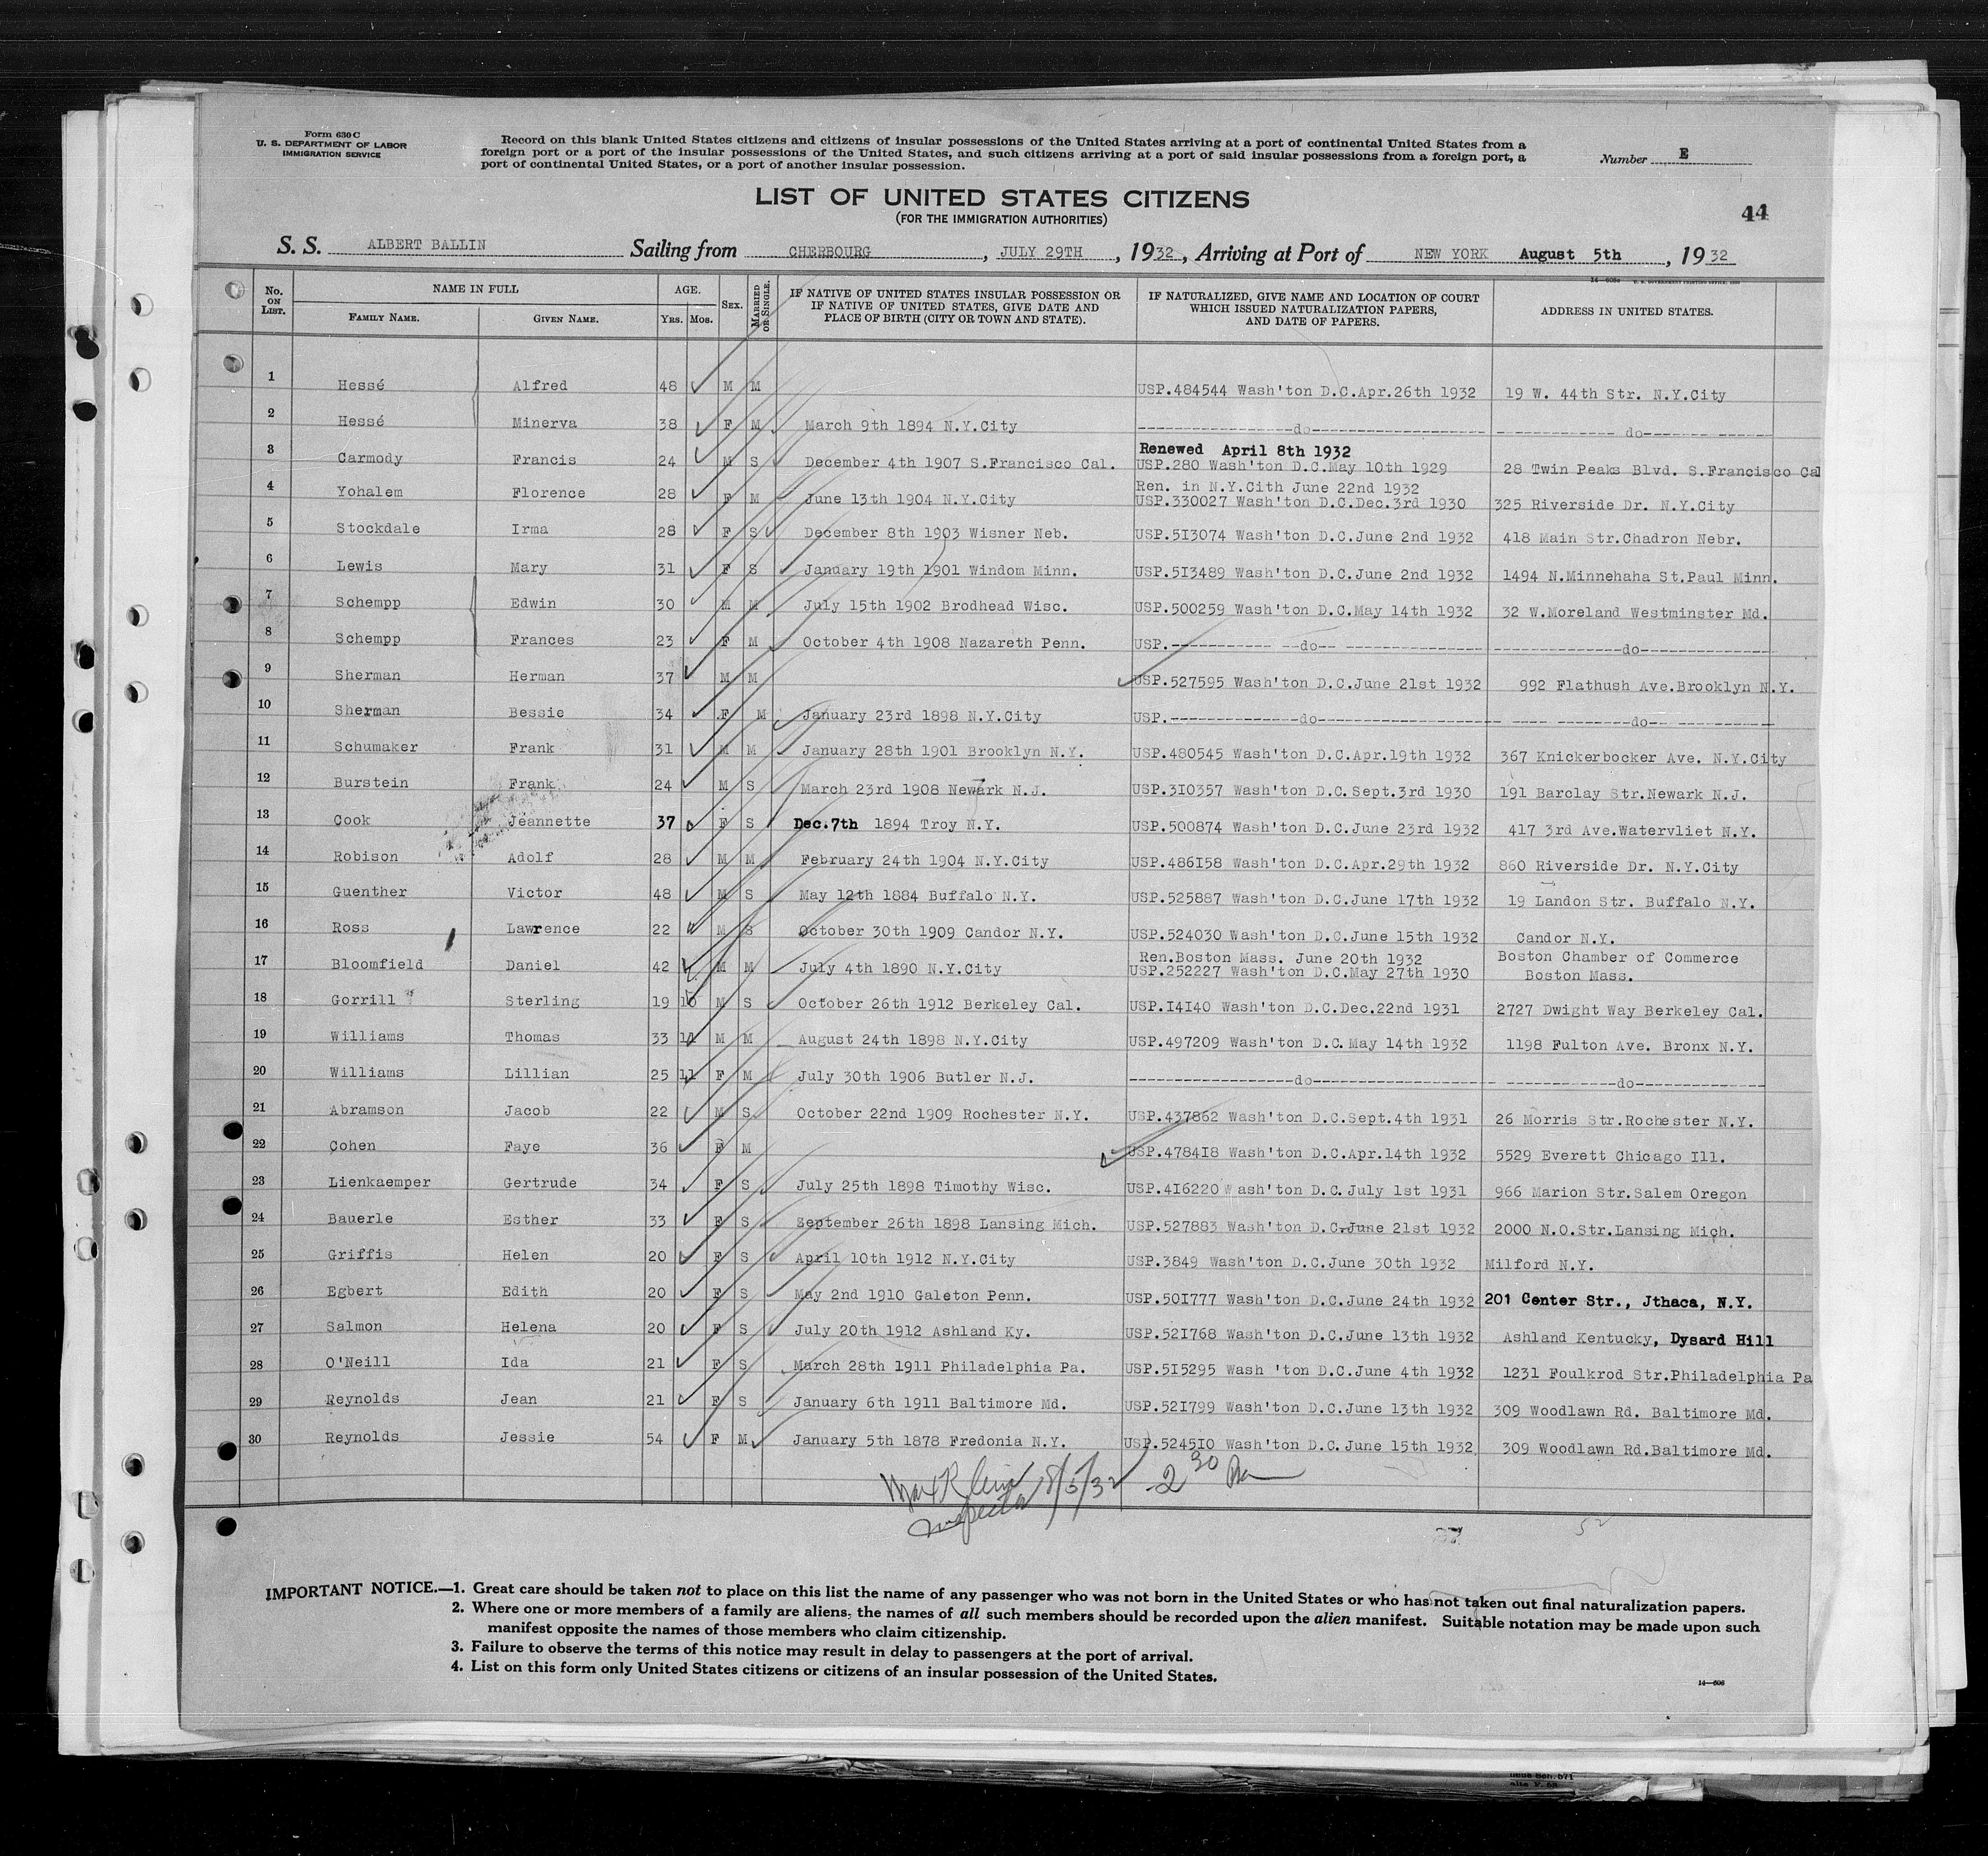 Form 630 C
U. S. DEPARTMENT OF LABOR
IMMIGRATION SERVICE
Record on this blank United States citizens and citizens of insular possessions of the United States arriving at a port of continental United States from a
foreign port or a port of the insular possessions of the United States, and such citizens arriving at a port of said insular possessions from a foreign port, a
port of continental United States, or a port of another insular possession.
Number E
LIST OF UNITED STATES CITIZENS
(FOR THE IMMIGRATION AUTHORITIES)
44
S. S. ALBERT BALLIN Sailing from CHERBOURG, JULY 29TH, 1932, Arriving at Port of NEW YORK August 5th, 1932
No. ON LIST. NAME IN FULL FAMILY NAME. GIVEN NAME. AGE. YRS. MOS. SEX. MARRIED OR SINGLE. IF NATIVE OF UNITED STATES INSULAR POSSESSION OR IF NATIVE OF UNITED STATES, GIVE DATE AND PLACE OF BIRTH (CITY OR TOWN AND STATE). IF NATURALIZED, GIVE NAME AND LOCATION OF COURT WHICH ISSUED NATURALIZATION PAPERS, AND DATE OF PAPERS. ADDRESS IN UNITED STATES.
1 Hessé Alfred 48 M M USP.484544 Wash'ton D.C.Apr.26th 1932 19 W. 44th Str. N.Y.City
2 Hessé Minerva 38 F M March 9th 1894 N.Y.City ----do---- ----do----
Renewed April 8th 1932
3 Carmody Francis 24 M S December 4th 1907 S.Francisco Cal. USP.280 Wash'ton D.C.May 10th 1929 28 Twin Peaks Blvd. S.Francisco Cal
Ren. in N.Y.Cith June 22nd 1932
4 Yohalem Florence 28 F M June 13th 1904 N.Y.City USP.330027 Wash'ton D.C.Dec.3rd 1930 325 Riverside Dr. N.Y.City
5 Stockdale Irma 28 F S December 8th 1903 Wisner Neb. USP.513074 Wash'ton D.C.June 2nd 1932 418 Main Str.Chadron Nebr.
6 Lewis Mary 31 F S January 19th 1901 Windom Minn. USP.513489 Wash'ton D.C.June 2nd 1932 1494 N.Minnehaha St.Paul Minn.
7 Schempp Edwin 30 M M July 15th 1902 Brodhead Wisc. USP.500259 Wash'ton D.C.May 14th 1932 32 W.Moreland Westminster Md.
8 Schempp Frances 23 F M October 4th 1908 Nazareth Penn. USP.----do---- ----do----
9 Sherman Herman 37 M M USP.527595 Wash'ton D.C.June 21st 1932 992 Flathush Ave.Brooklyn N.Y.
10 Sherman Bessie 34 F M January 23rd 1898 N.Y.City USP.----do---- ----do----
11 Schumaker Frank 31 M M January 28th 1901 Brooklyn N.Y. USP.480545 Wash'ton D.C.Apr.19th 1932 367 Knickerbocker Ave. N.Y.City
12 Burstein Frank 24 M S March 23rd 1908 Newark N.J. USP.310357 Wash'ton D.C.Sept.3rd 1930 191 Barclay Str.Newark N.J.
13 Cook Jeannette 37 F S Dec.7th 1894 Troy N.Y. USP.500874 Wash'ton D.C.June 23rd 1932 417 3rd Ave.Watervliet N.Y.
14 Robison Adolf 28 M M February 24th 1904 N.Y.City USP.486158 Wash'ton D.C.Apr.29th 1932 860 Riverside Dr. N.Y.City
15 Guenther Victor 48 M S May 12th 1884 Buffalo N.Y. USP.525887 Wash'ton D.C.June 17th 1932 19 Landon Str. Buffalo N.Y.
16 Ross Lawrence 22 M S October 30th 1909 Candor N.Y. USP.524030 Wash'ton D.C.June 15th 1932 Candor N.Y.
Ren.Boston Mass. June 20th 1932 Boston Chamber of Commerce
17 Bloomfield Daniel 42 M M July 4th 1890 N.Y.City USP.252227 Wash'ton D.C.May 27th 1930 Boston Mass.
18 Gorrill Sterling 19 10 M S October 26th 1912 Berkeley Cal. USP.14140 Wash'ton D.C.Dec.22nd 1931 2727 Dwight Way Berkeley Cal.
19 Williams Thomas 33 11 M M August 24th 1898 N.Y.City USP.497209 Wash'ton D.C.May 14th 1932 1198 Fulton Ave. Bronx N.Y.
20 Williams Lillian 25 11 F M July 30th 1906 Butler N.J. ----do---- ----do----
21 Abramson Jacob 22 M S October 22nd 1909 Rochester N.Y. USP.437862 Wash'ton D.C.Sept.4th 1931 26 Morris Str.Rochester N.Y.
22 Cohen Faye 36 F M USP.478418 Wash'ton D.C.Apr.14th 1932 5529 Everett Chicago Ill.
23 Lienkaemper Gertrude 34 F S July 25th 1898 Timothy Wisc. USP.416220 Wash'ton D.C.July 1st 1931 966 Marion Str.Salem Oregon
24 Bauerle Esther 33 F S September 26th 1898 Lansing Mich. USP.527883 Wash'ton D.C.June 21st 1932 2000 N.O.Str.Lansing Mich.
25 Griffis Helen 20 F S April 10th 1912 N.Y.City USP.3849 Wash'ton D.C.June 30th 1932 Milford N.Y.
26 Egbert Edith 20 F S May 2nd 1910 Galeton Penn. USP.501777 Wash'ton D.C.June 24th 1932 201 Center Str., Jthaca, N.Y.
27 Salmon Helena 20 F S July 20th 1912 Ashland Ky. USP.521768 Wash'ton D.C.June 13th 1932 Ashland Kentucky, Dysard Hill
28 O'Neill Ida 21 F S March 28th 1911 Philadelphia Pa. USP.515295 Wash 'ton D.C.June 4th 1932 1231 Foulkrod Str.Philadelphia Pa
29 Reynolds Jean 21 F S January 6th 1911 Baltimore Md. USP.521799 Wash'ton D.C.June 13th 1932 309 Woodlawn Rd. Baltimore Md.
30 Reynolds Jessie 54 F M January 5th 1878 Fredonia N.Y. USP.524510 Wash'ton D.C.June 15th 1932 309 Woodlawn Rd.Baltimore Md.
8/5/32 2 30
Inspector
52
IMPORTANT NOTICE.—1. Great care should be taken not to place on this list the name of any passenger who was not born in the United States or who has not taken out final naturalization papers.
2. Where one or more members of a family are aliens, the names of all such members should be recorded upon the alien manifest. Suitable notation may be made upon such
manifest opposite the names of those members who claim citizenship.
3. Failure to observe the terms of this notice may result in delay to passengers at the port of arrival.
4. List on this form only United States citizens or citizens of an insular possession of the United States.
14—606